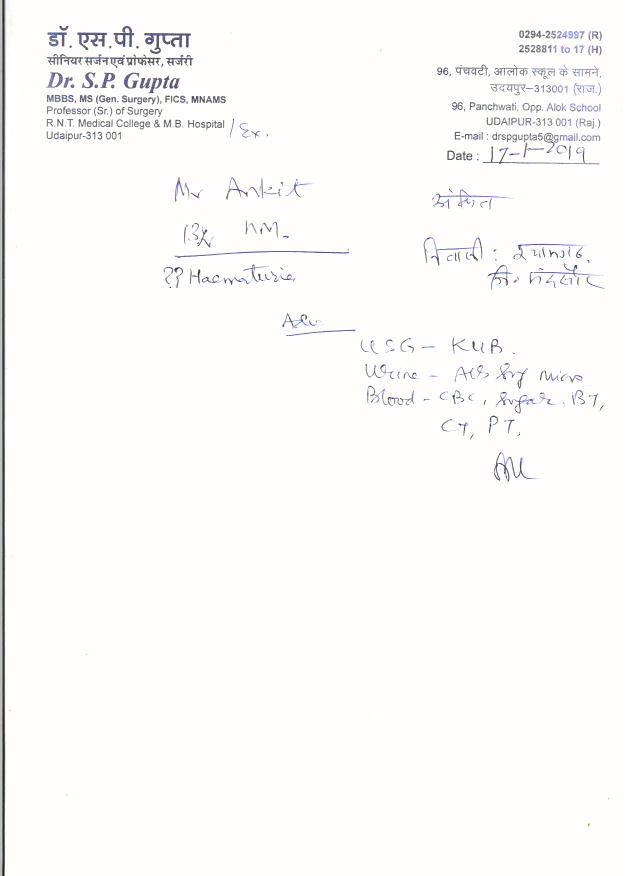 डॉ. एस.पी. गुप्ता
सीनियर सर्जन एवं प्रोफेसर, सर्जरी
Dr. S.P. Gupta
MBBS, MS (Gen. Surgery), FICS, MNAMS
Professor (Sr.) of Surgery
R.N.T. Medical College & M.B. Hospital / Ex.
Udaipur-313 001
0294-2524997 (R)
2528811 to 17 (H)
96, पंचवटी, आलोक स्कूल के सामने,
उदयपुर–313001 (राज.)
96, Panchwati, Opp. Alok School
UDAIPUR-313 001 (Raj.)
E-mail : drspgupta5@gmail.com
Date : 17-1-2019
Mr Ankit
अंकित
13y M.
निवासी :
जि. मंदसौर
?? Haematuria
Adv
USG - KUB.
Urine - Alb Sug Micro
Blood - CBC, Sugar. BT,
CT, PT,